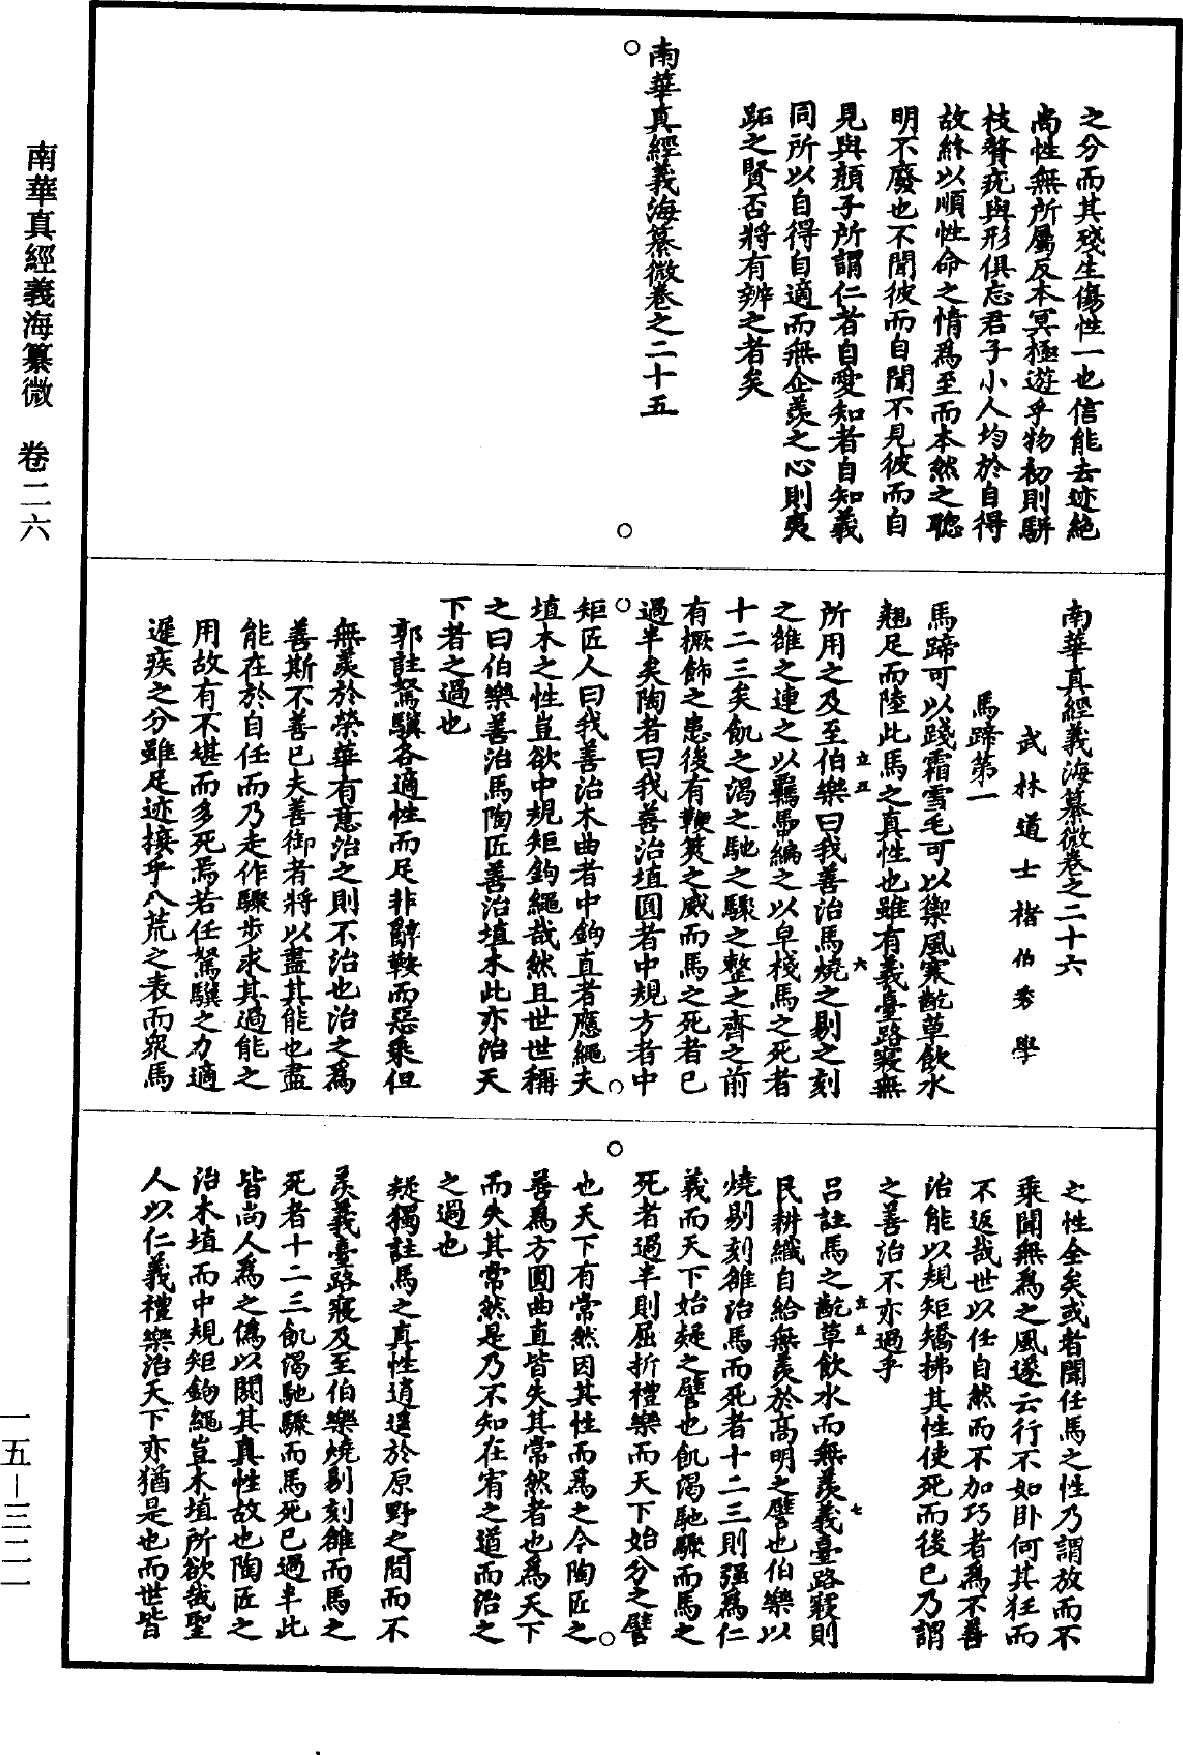 之分而其殘生傷性一也信能去迹絕
尚性無所屬反本冥極遊乎物初則駢
枝贅疣與形俱忘君子小人均於自得
故終以順性命之情為至而本然之聰
明不廢也不聞彼而自聞不見彼而自
見與顏子所謂仁者自愛知者自知義
同所以自得自適而無企羨之心則夷
跖之賢否將有辨之者矣
南華真經義海纂微卷之二十五
南華真經義海纂微卷之二十六
武林道士褚伯秀學
馬蹄第一
馬蹄可以踐霜雪毛可以禦風寒齕草飲水
翹足而陸此馬之真性也雖有義臺路寢無
立五
六
所用之及至伯樂曰我善治馬燒之剔之刻
之雒之連之以羈馽編之以皁棧馬之死者
十二三矣飢之渴之馳之驟之整之齊之前
有橛飾之患後有鞭筴之威而馬之死者已
過半矣陶者曰我善治埴圓者中規方者中
矩匠人曰我善治木曲者中鉤直者應繩夫
埴木之性豈欲中規矩鉤繩哉然且世世稱
之曰伯樂善治馬陶匠善治埴木此亦治天
下者之過也
郭註駑驥各適性而足非辭鞍而惡乘但
無羨於榮華有意治之則不治也治之為
善斯不善已夫善御者將以盡其能也盡
能在於自任而乃走作驟步求其過能之
用故有不堪而多死焉若任駑驥之力適
遲疾之分雖足迹接乎八荒之表而眾馬
之性全矣或者聞任馬之性乃謂放而不
乘聞無為之風遂云行不如臥何其狂而
不返哉世以任自然而不加巧者為不善
治能以規矩矯拂其性使死而後已乃謂
之善治不亦過乎
立五
七
呂註馬之齕草飲水而無羨義臺路寢則
民耕織自給無羨於高明之譬也伯樂以
燒剔刻雒治馬而死者十二三則強為仁
義而天下始疑之譬也飢渴馳驟而馬之
死者過半則屈折禮樂而天下始分之譬
也天下有常然因其性而為之今陶匠之
善為方圓曲直皆失其常然者也為天下
而失其常然是乃不知在宥之道而治之
之過也
疑獨註馬之真性逍遙於原野之間而不
羨義臺路寢及至伯樂燒剔刻雒而馬之
死者十二三飢渴馳驟而馬死已過半此
皆尚人為之偽以閼其真性故也陶匠之
治木埴而中規矩鉤繩豈木埴所欲哉聖
人以仁義禮樂治天下亦猶是也而世皆
南華真經義海纂微 卷二六
一五—三二一